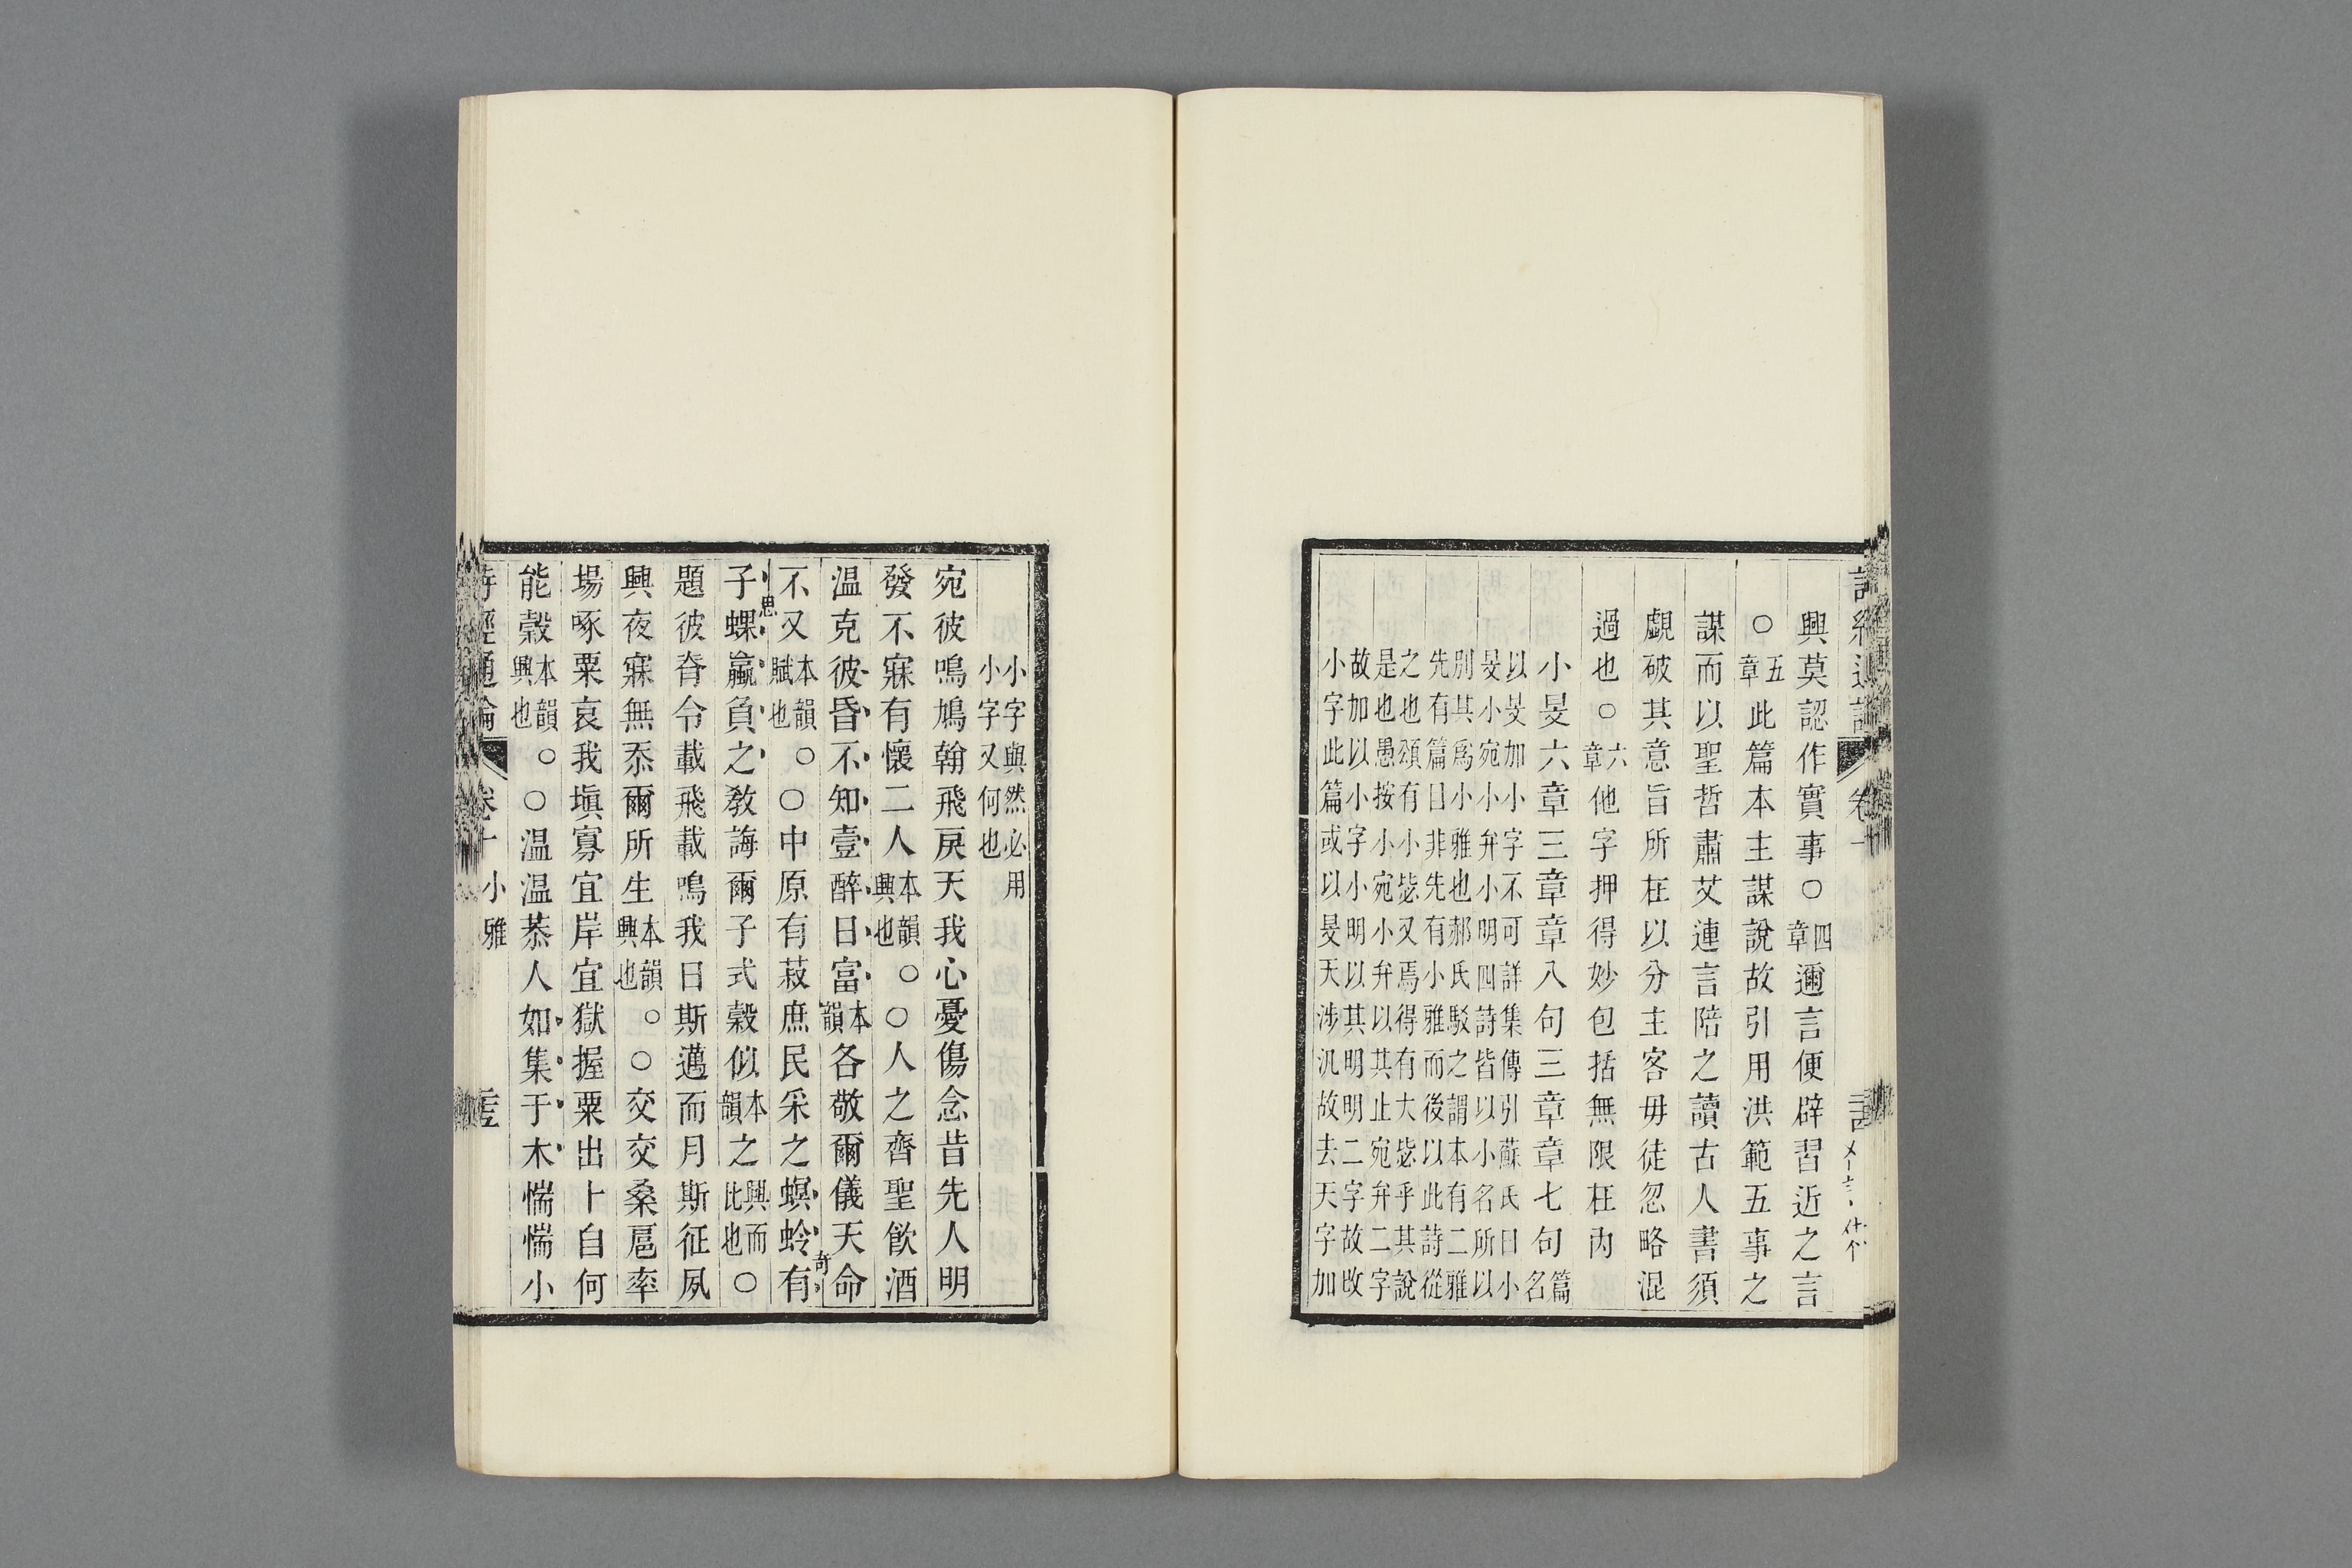 興莫認作實事○四章邇言便辟習近之言
○五章此篇本主謀說故引用洪範五事之
謀而以聖哲肅艾連言陪之讀古人書須
覷破其意旨所在以分主客毋徒忽略混
過也○六章他字押得妙包括無限在內
小旻六章三章章八句三章章七句篇名
以旻加小字不可詳集傳引蘇氏曰小
旻小宛小弁小明四詩皆以小名所以
別其爲小雅也郝氏駁之謂本有二雅
先有篇目非先有小雅而後以此詩從
之也頌有小毖又焉得有大毖乎其說
是也愚按小宛小弁以其止宛弁二字
故加以小字小明以其明明二字故改
小字此篇或以旻天涉汎故去天字加
小字與然必用
小字又何也
宛彼鳴鳩翰飛戾天我心憂傷念昔先人明
發不寐有懷二人本韻興也○○人之齊聖飲酒
温克彼昏不知壹醉日富本韻各敬爾儀天命
奇
不又本韻賦也○○中原有菽庶民采之螟蛉有
思
子蜾蠃負之敎誨爾子式穀似本韻之興而比也○
題彼脊令載飛載鳴我日斯邁而月斯征夙
興夜寐無忝爾所生本韻興也○○交交桑扈率
場啄粟哀我塡寡宜岸宜獄握粟出卜自何
能穀本韻興也○○温温恭人如集于木惴惴小
詩經通論 卷十 小雅